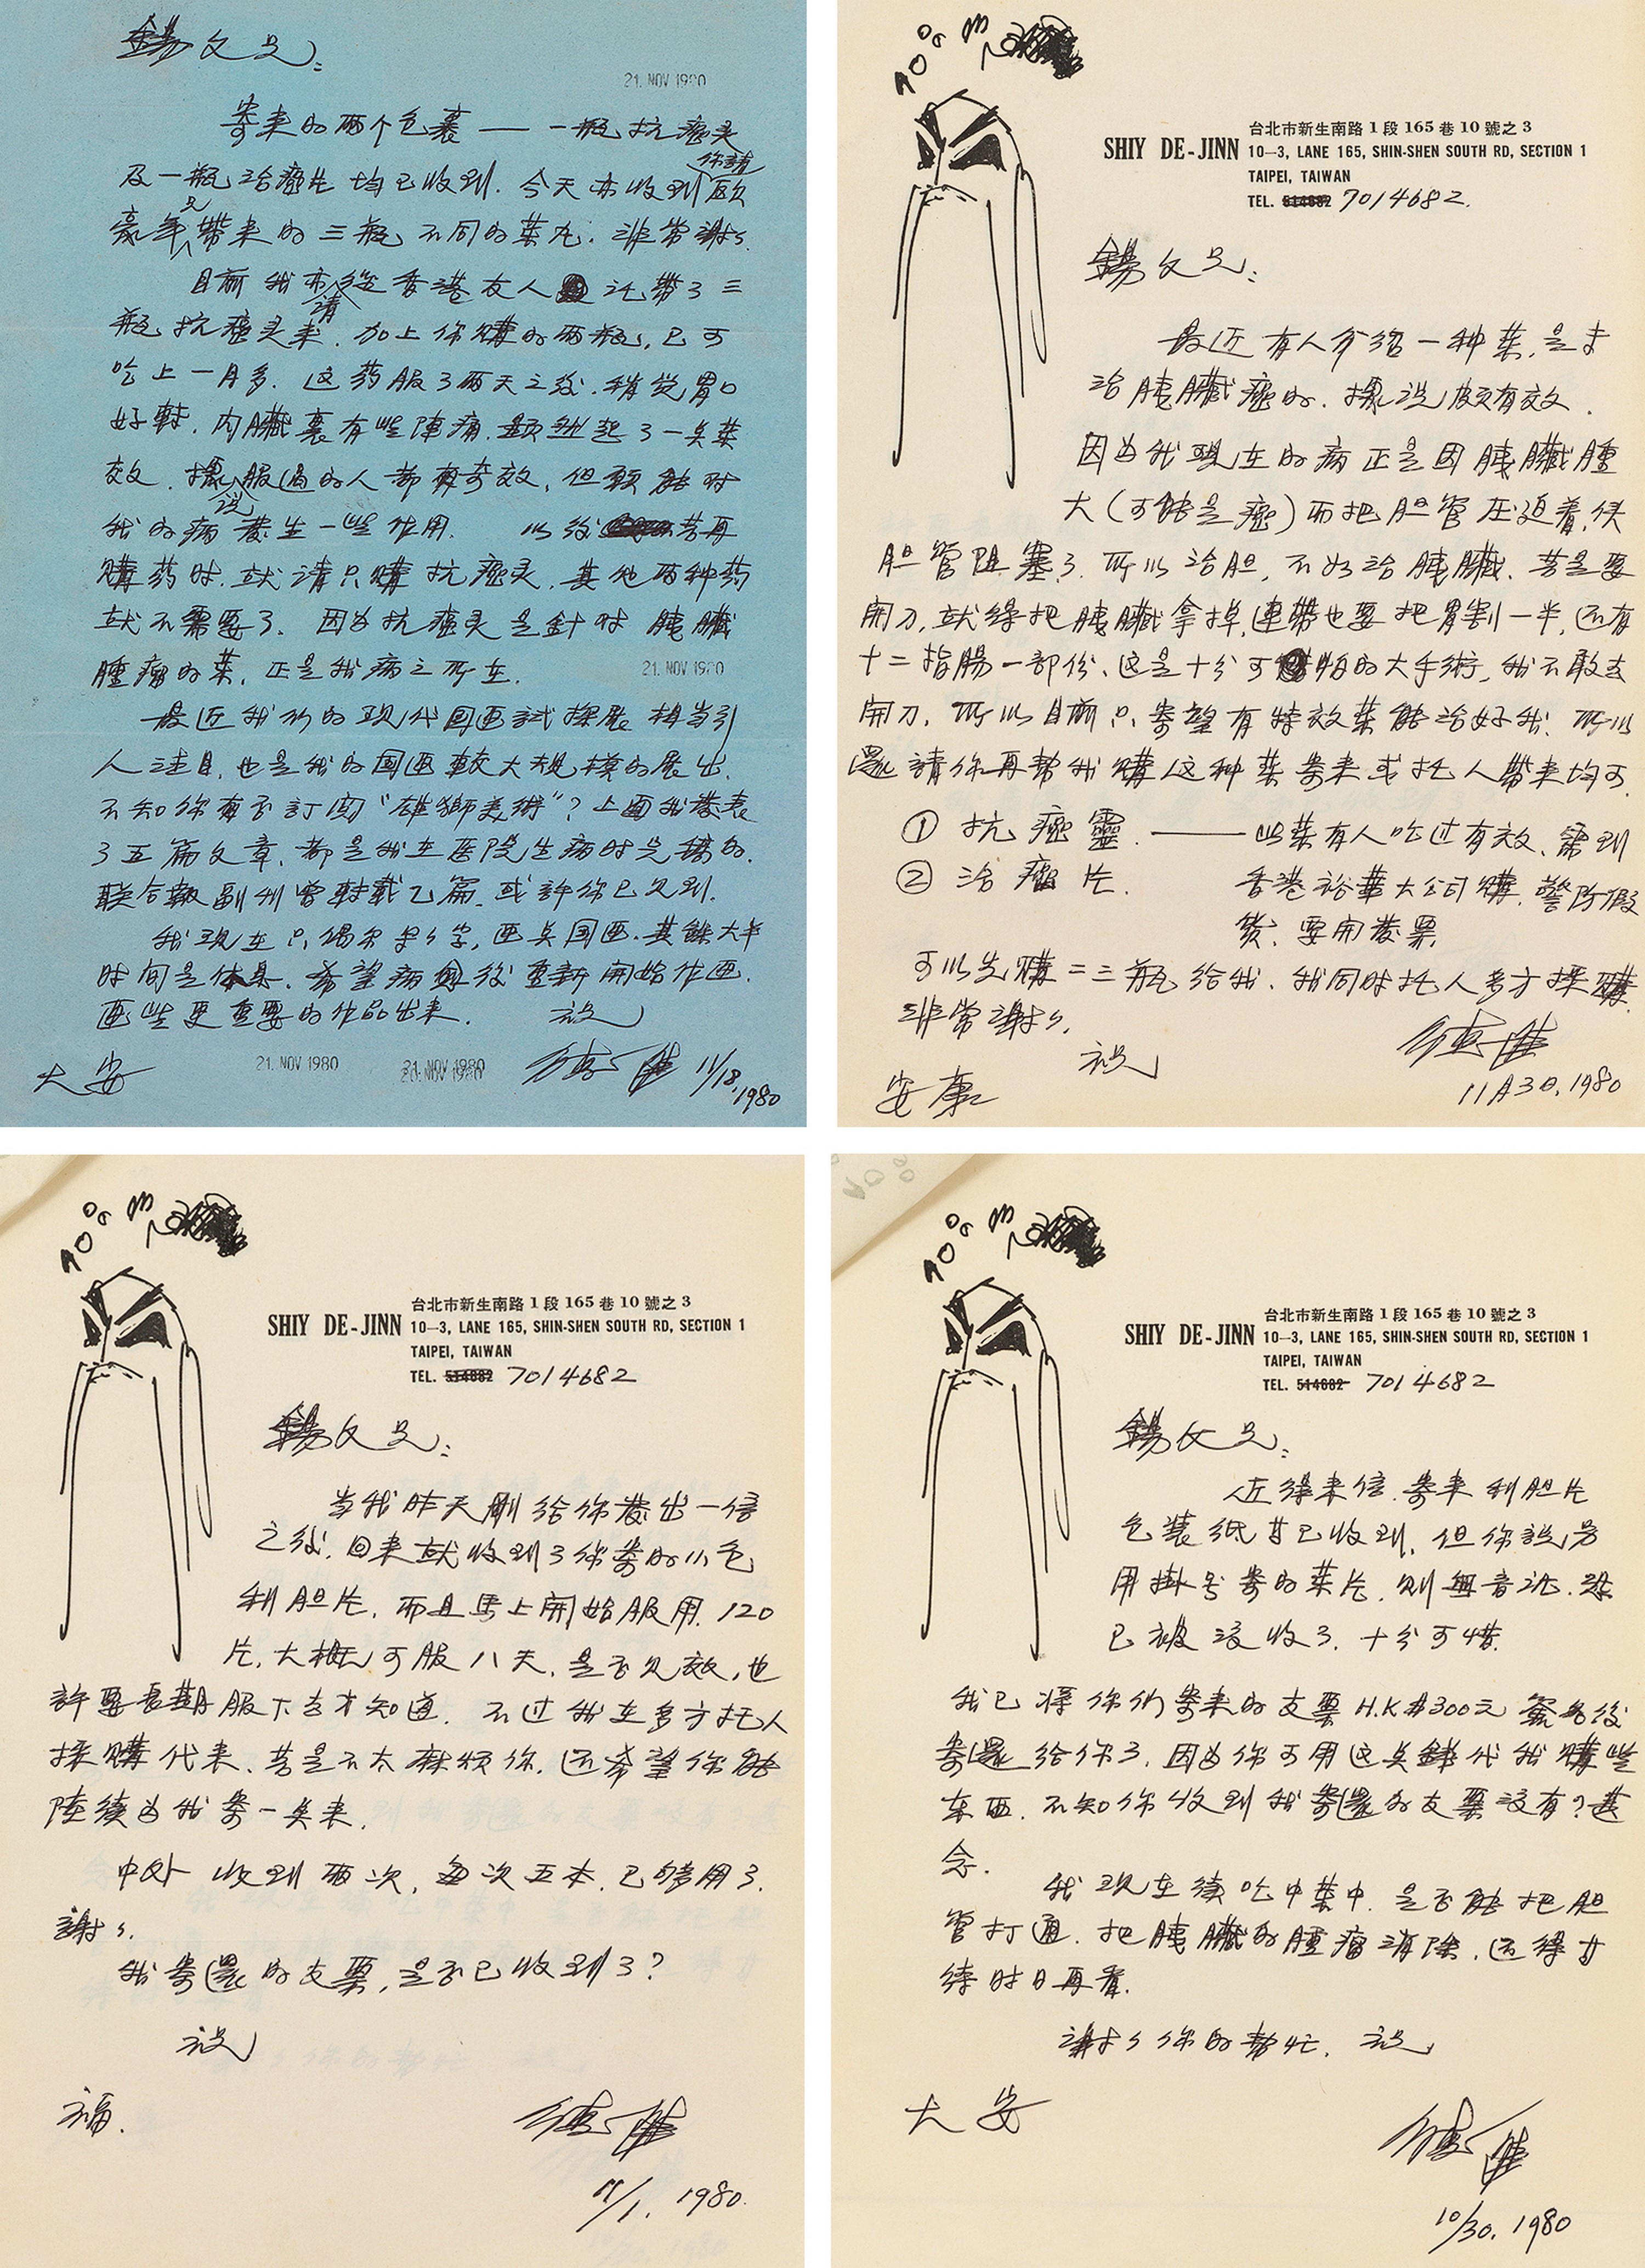 錫文兄：
21. NOV 1980
寄来的两个包裹——一瓶抗癌灵
及一瓶治癌片均已收到．今天亦收到你請顾
豪年兄帶来的三瓶不同的葯丸．非常謝々．
目前我亦請從香港友人託帶了三
瓶抗癌灵来．加上你購的两瓶，已可
吃上一月多．这药服了两天之後．稍觉胃口
好轉．内臟裏有些陣痛．顕然起了一点葯
效．據说服過的人都有奇效，但願能对
我的病發生一些作用．以後若再
購药时．就請只購抗癌灵．其他两种药
就不需要了．因为抗癌灵是針对胰臟
腫瘤的葯．正是我病之所在．
21. NOV 1980
最近我们的现代国画試探展相当引
人注目．也是我的国画較大規模的展出．
不知你有否訂閱“雄獅美術”？上面我發表
了五篇文章，都是我在医院生病时完稿的．
联合報副刊曾轉載乙篇．或許你已见到．
我现在只偶尔写々字，画点国画．其餘大半
时间是休息．希望病後重新開始作画．
画些更重要的作品出来．祝
大安
21. NOV 1980
21. NOV 1980
德進 11/18, 1980
SHIY DE-JINN
台北市新生南路1段165巷10號之3
10—3, LANE 165, SHIN-SHEN SOUTH RD, SECTION 1
TAIPEI, TAIWAN
TEL. 514682 7014682.
錫文兄：
最近有人介绍一种葯．是专
治胰臟癌的．據说颇有效．
因为我现在的病正是因胰臟腫
大（可能是癌）而把胆管压迫着，使
胆管阻塞了．所以治胆，不如治胰臟．若是要
開刀，就得把胰臟拿掉，連帶也要把胃割一半，还有
十二指腸一部份、这是十分可怕的大手術，我不敢去
開刀．所以目前只寄望有特效葯能治好我．所以
還請你再幫我購这种葯寄来或托人帶来均可．
① 抗癌靈．——此葯有人吃过有效、需到
② 治癌片．香港裕華大公司購．警防假
貨，要開發票．
可以先購二三瓶给我．我同时托人多方採購．
非常謝々．
祝
安康
德進
11月3日，1980
SHIY DE-JINN
台北市新生南路1段165巷10號之3
10—3, LANE 165, SHIN-SHEN SOUTH RD, SECTION 1
TAIPEI, TAIWAN
TEL. 514682 7014682
錫文兄：
当我昨天剛给你發出一信
之後．回来就收到了你寄的小包
利胆片，而且馬上開始服用．120
片，大概可服八天，是否见效，也
許要長期服下去才知道．不过我在多方托人
採購代来．若是不太麻烦你．还希望你能
陸續为我寄一点来．
中外收到两次，每次五本．已够用了．
謝々．
我寄還的支票，是否已收到了？
祝
福．
德進
11/1. 1980.
SHIY DE-JINN
台北市新生南路1段165巷10號之3
10—3, LANE 165, SHIN-SHEN SOUTH RD, SECTION 1
TAIPEI, TAIWAN
TEL. 514682 7014682
錫文兄：
近得来信．寄来利胆片
包装纸等已收到，但你説另
用掛号寄的葯片．则無音讯．恐
已被没收了．十分可惜．
我已将你们寄来的支票H.K＄300元簽名後
寄還给你了，因为你可用这点錢代我購些
东西．不知你收到我寄還的支票没有？甚
念．
我现在續吃中葯中．是否能把胆
管打通．把胰臟的腫瘤消除．还得等
待时日再看．
謝々你的幫忙．祝
大安
德進
10/30, 1980